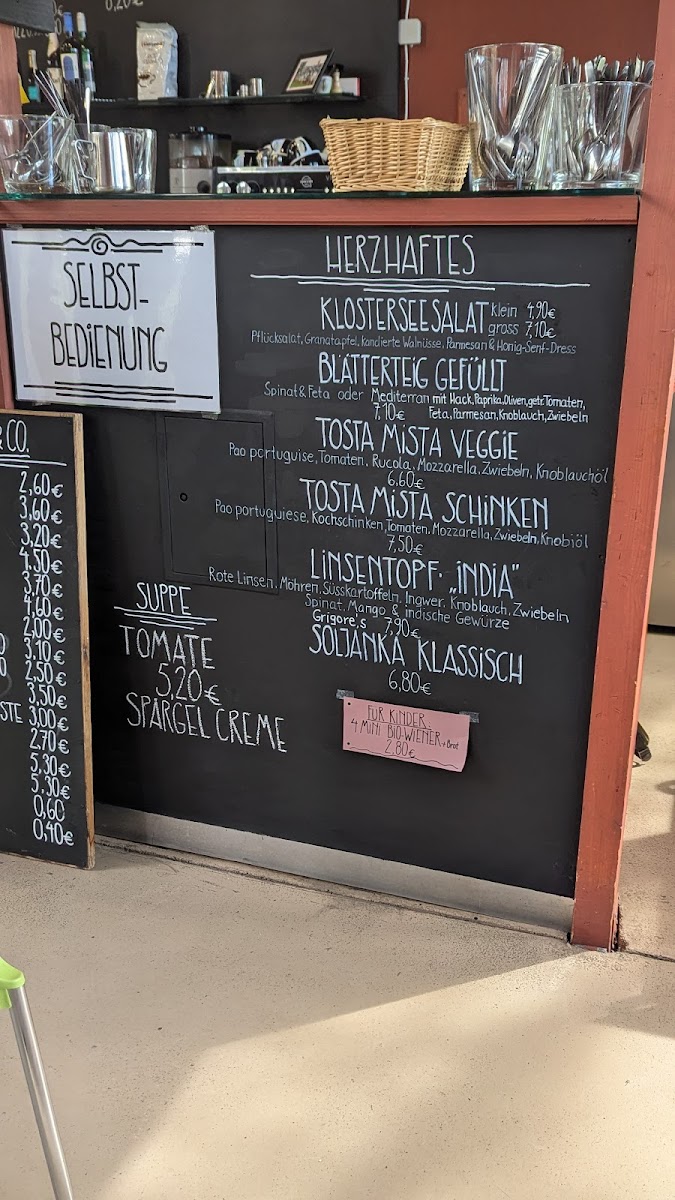 0,20€
SELBST-
BEDIENUNG
HERZHAFTES
KLOSTERSEESALAT klein 4,90€
gross 7,10€
Pflücksalat, Granatapfel, kandierte Walnüsse, Parmesan & Honig-Senf-Dress
BLÄTTERTEIG GEFÜLLT
Spinat & Feta oder Mediterran mit Hack, Paprika, Oliven, getr. Tomaten,
7,10€ Feta, Parmesan, Knoblauch, Zwiebeln
TOSTA MISTA VEGGIE
Pao portuguise, Tomaten, Rucola, Mozzarella, Zwiebeln, Knoblauchöl
6,60€
TOSTA MISTA SCHINKEN
Pao portuguiese, Kochschinken, Tomaten, Mozzarella, Zwiebeln, Knobiöl
7,50€
LINSENTOPF · „INDIA"
Rote Linsen, Möhren, Süsskartoffeln, Ingwer, Knoblauch, Zwiebeln
Spinat, Mango & indische Gewürze
Grigore's 7,90€
SOLJANKA KLASSISCH
6,80€
FÜR KINDER:
4 MINI BIO-WIENER + Brot
2,80€
SUPPE
TOMATE
5,20€
SPARGELCREME
& CO.
2,60€
3,60€
3,20€
4,50€
3,70€
4,60€
2,00€
3,10€
2,50€
3,50€
STE 3,00€
2,70€
5,30€
5,30€
0,60
0,40€